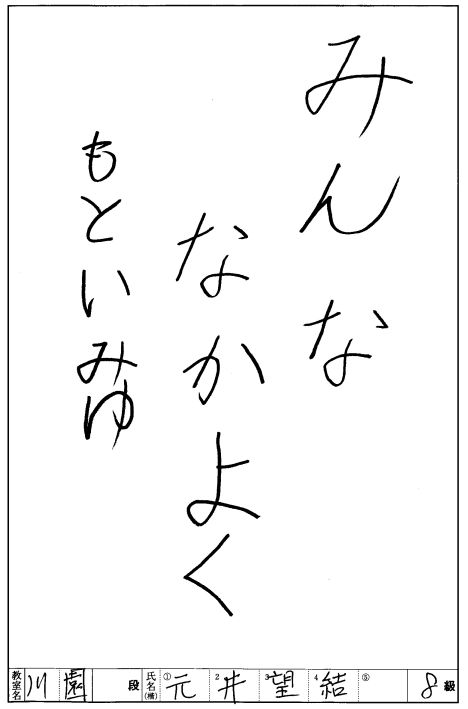 みんな
なかよく
もといみゆ
教室名 川園 段 氏名(楷) ①元 2井 3望 4結 ⑤ 8級